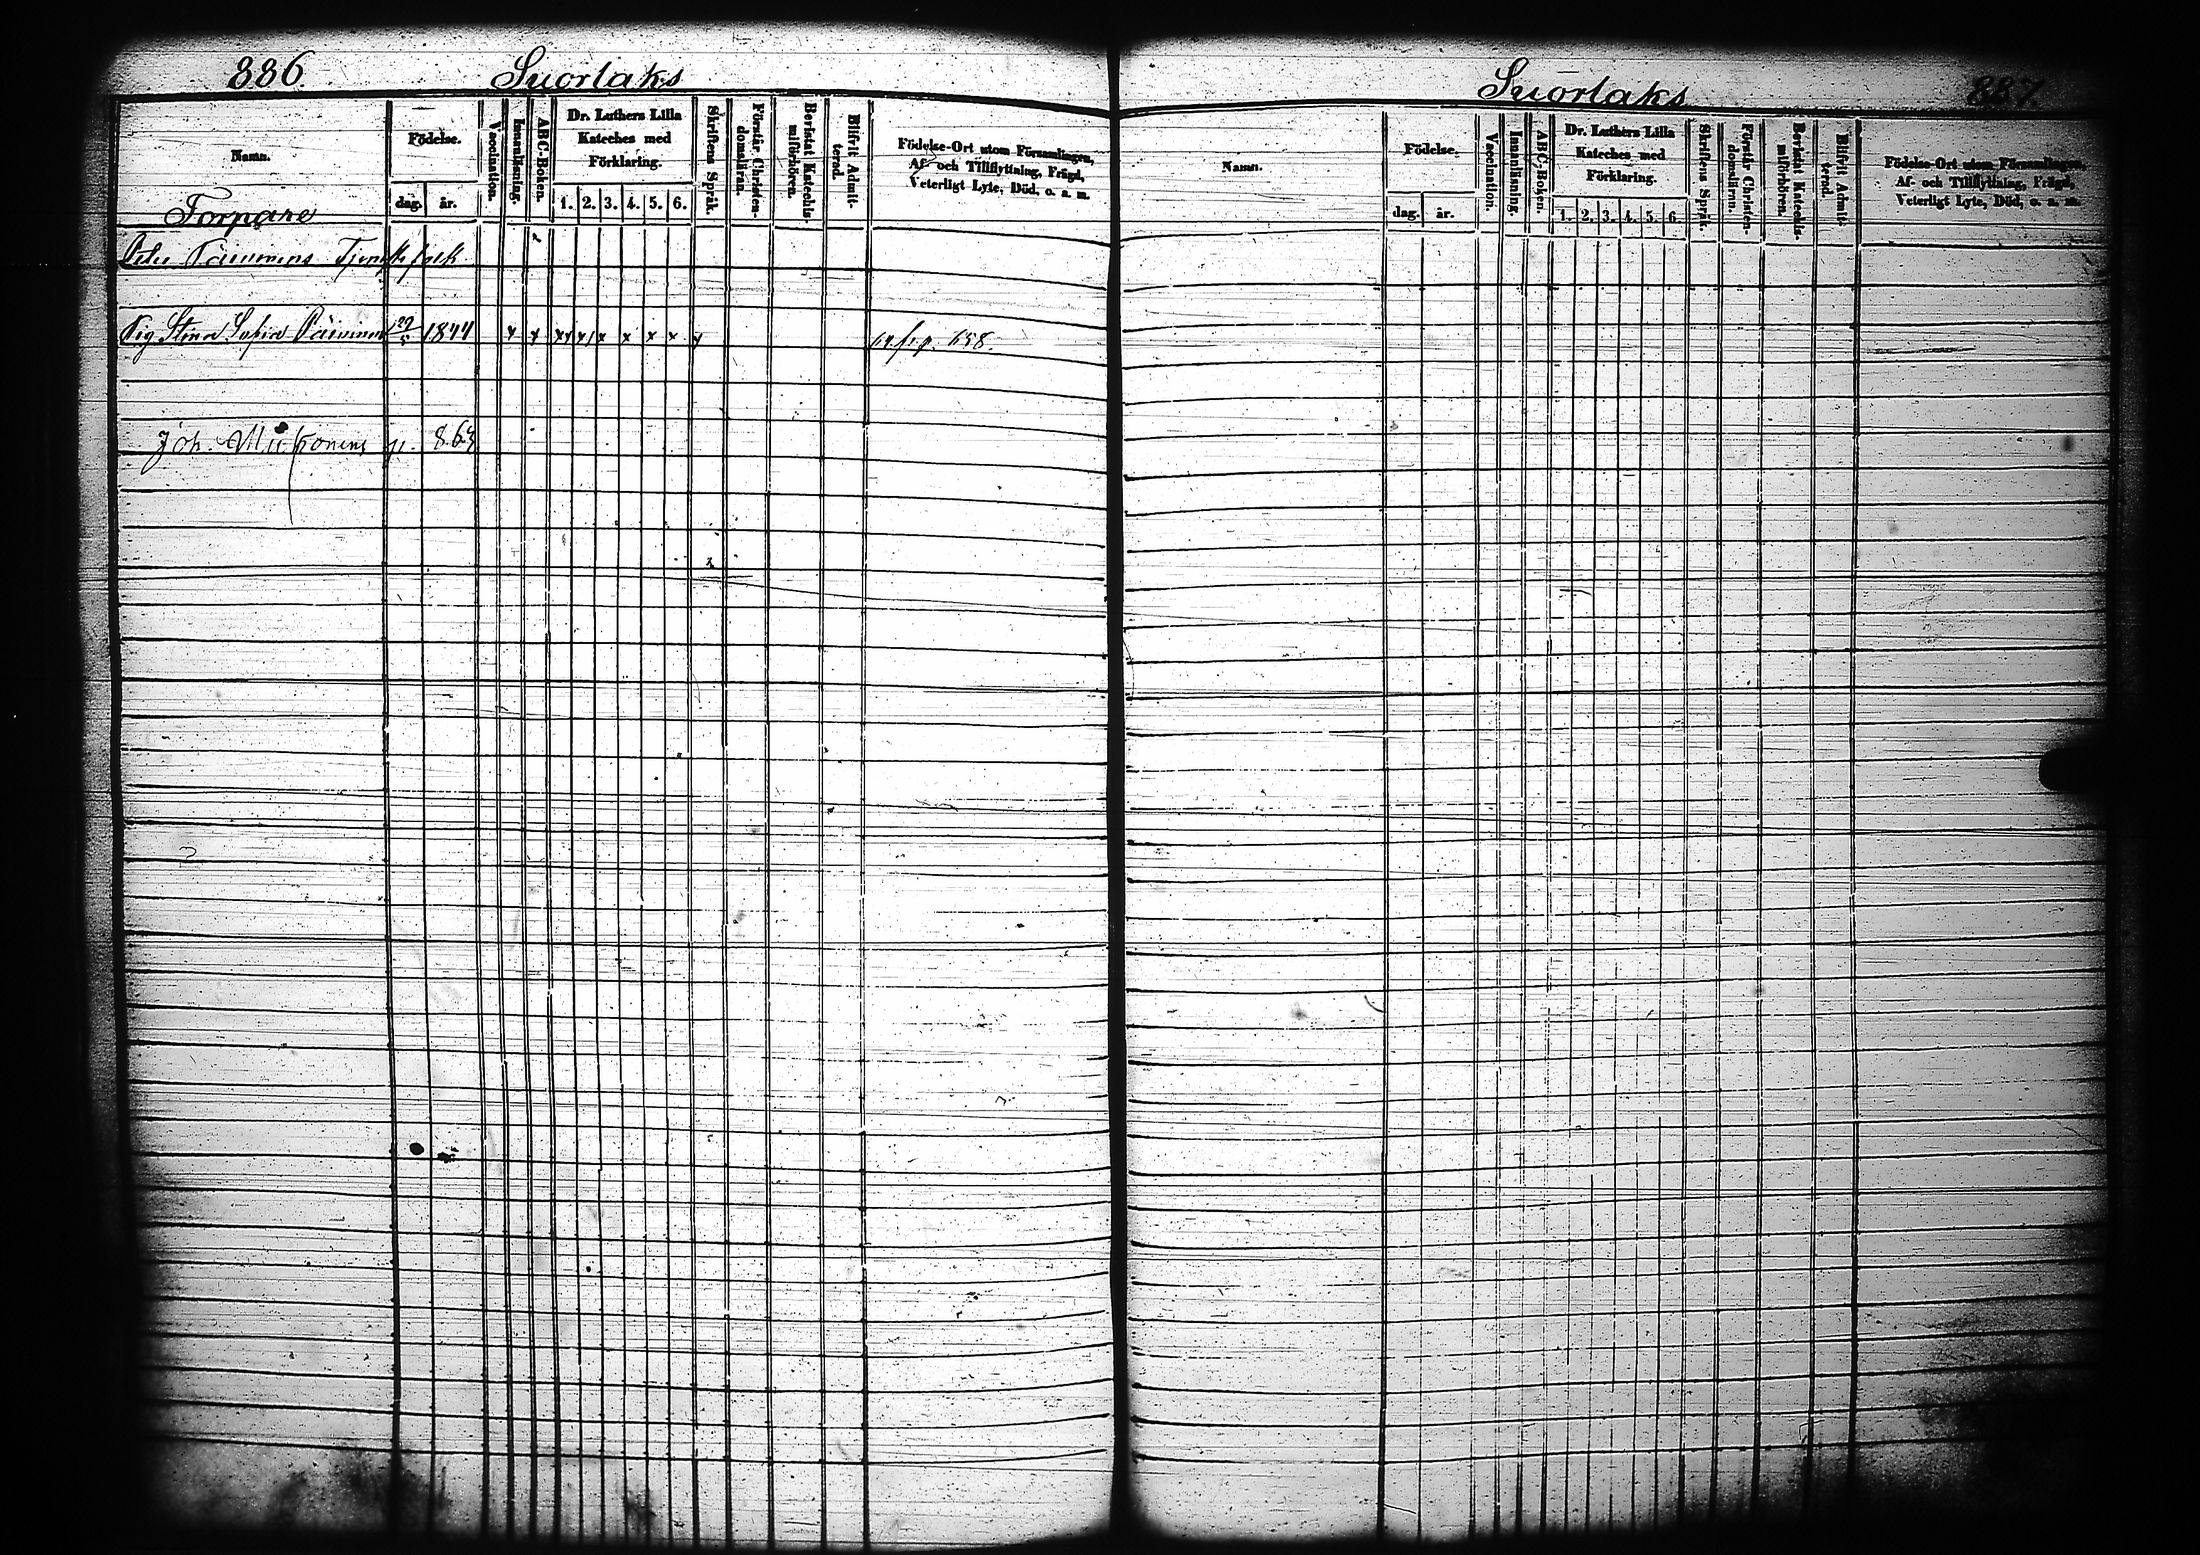 886. Suorlaks
Namn.
Födelse.
dag. år.
Vaccination.
Innanläsning.
ABC-Boken.
Dr. Luthers Lilla
Kateches med
Förklaring.
1. 2. 3. 4. 5. 6.
Skriftens Språk.
Förstår Christen-
domsläran.
Bevistat Katechis-
miförhören.
Blifvit Admit-
terad.
Födelse-Ort utom Församlingen,
Af- och Tillflyttning, Frägd,
Veterligt Lyte, Död, o. a. m.
Torpare
Päivinens
Pig. Stina Sofia Päivinen 29/5 1844 x x x x x x x x x p. 658.
Joh. p. 863
Suorlaks 887.
Namn.
Födelse.
dag. år.
Vaccination.
Innanläsning.
ABC-Boken.
Dr. Luthers Lilla
Kateches med
Förklaring.
1. 2. 3. 4. 5. 6.
Skriftens Språk.
Förstår Christen-
domsläran.
Bevistat Katechis-
miförhören.
Blifvit Admit-
terad.
Födelse-Ort utom Församlingen,
Af- och Tillflyttning, Frägd,
Veterligt Lyte, Död, o. a. m.